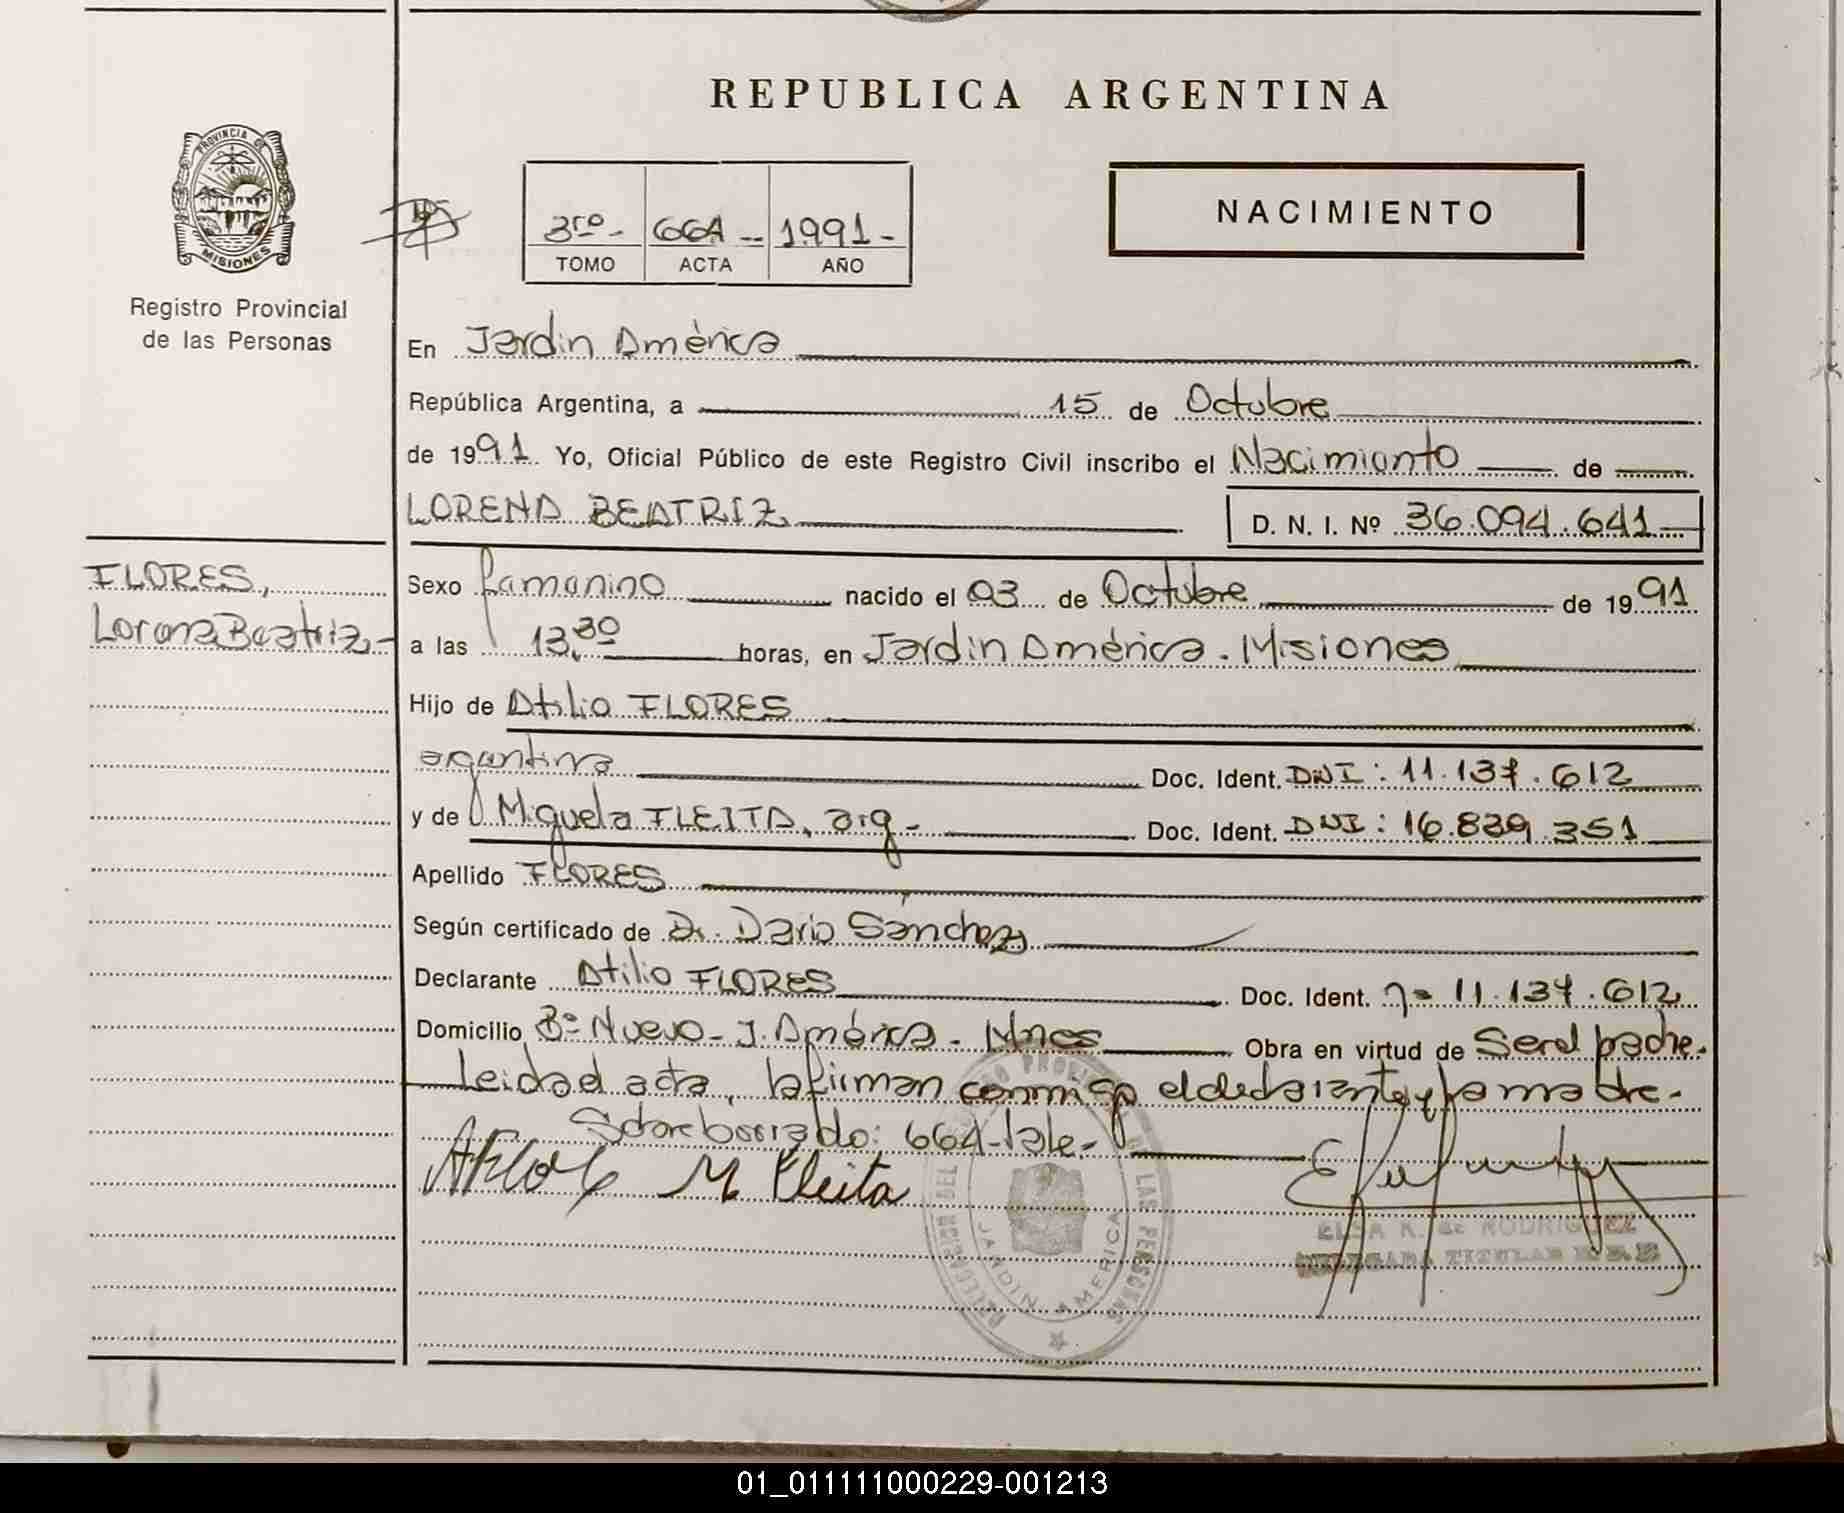 REPUBLICA ARGENTINA
PROVINCIA DE
MISIONES
Registro Provincial
de las Personas
3ro.- 664 -- 1991 -
TOMO ACTA AÑO
NACIMIENTO
En Jardin América
República Argentina, a 15 de Octubre
de 1991. Yo, Oficial Público de este Registro Civil inscribo el Nacimiento de
LORENA BEATRIZ
D. N. I. Nº 36.094.641
FLORES,
Lorena Beatriz.-
Sexo femenino nacido el 03 de Octubre de 1991
a las 13,30 horas, en Jardin América. Misiones
Hijo de Atilio FLORES
argentina Doc. Ident. DNI: 11.137.612
y de Miguela FLEITA, arg.- Doc. Ident. DNI: 16.829.351
Apellido FLORES
Según certificado de Dr. Dario Sánchez
Declarante Atilio FLORES Doc. Ident. nº 11.137.612
Domicilio Bº Nuevo - J. América - Mnes Obra en virtud de Ser el padre.
Leida el acta, la firman conmigo el declarante y la madre.
Sobreborrado: 664-Vale.-
M Fleita
ELSA R. de RODRIGUEZ
DELEGADA TITULAR
PROVINCIAL DE LAS PERSONAS
JARDIN AMERICA
01_011111000229-001213